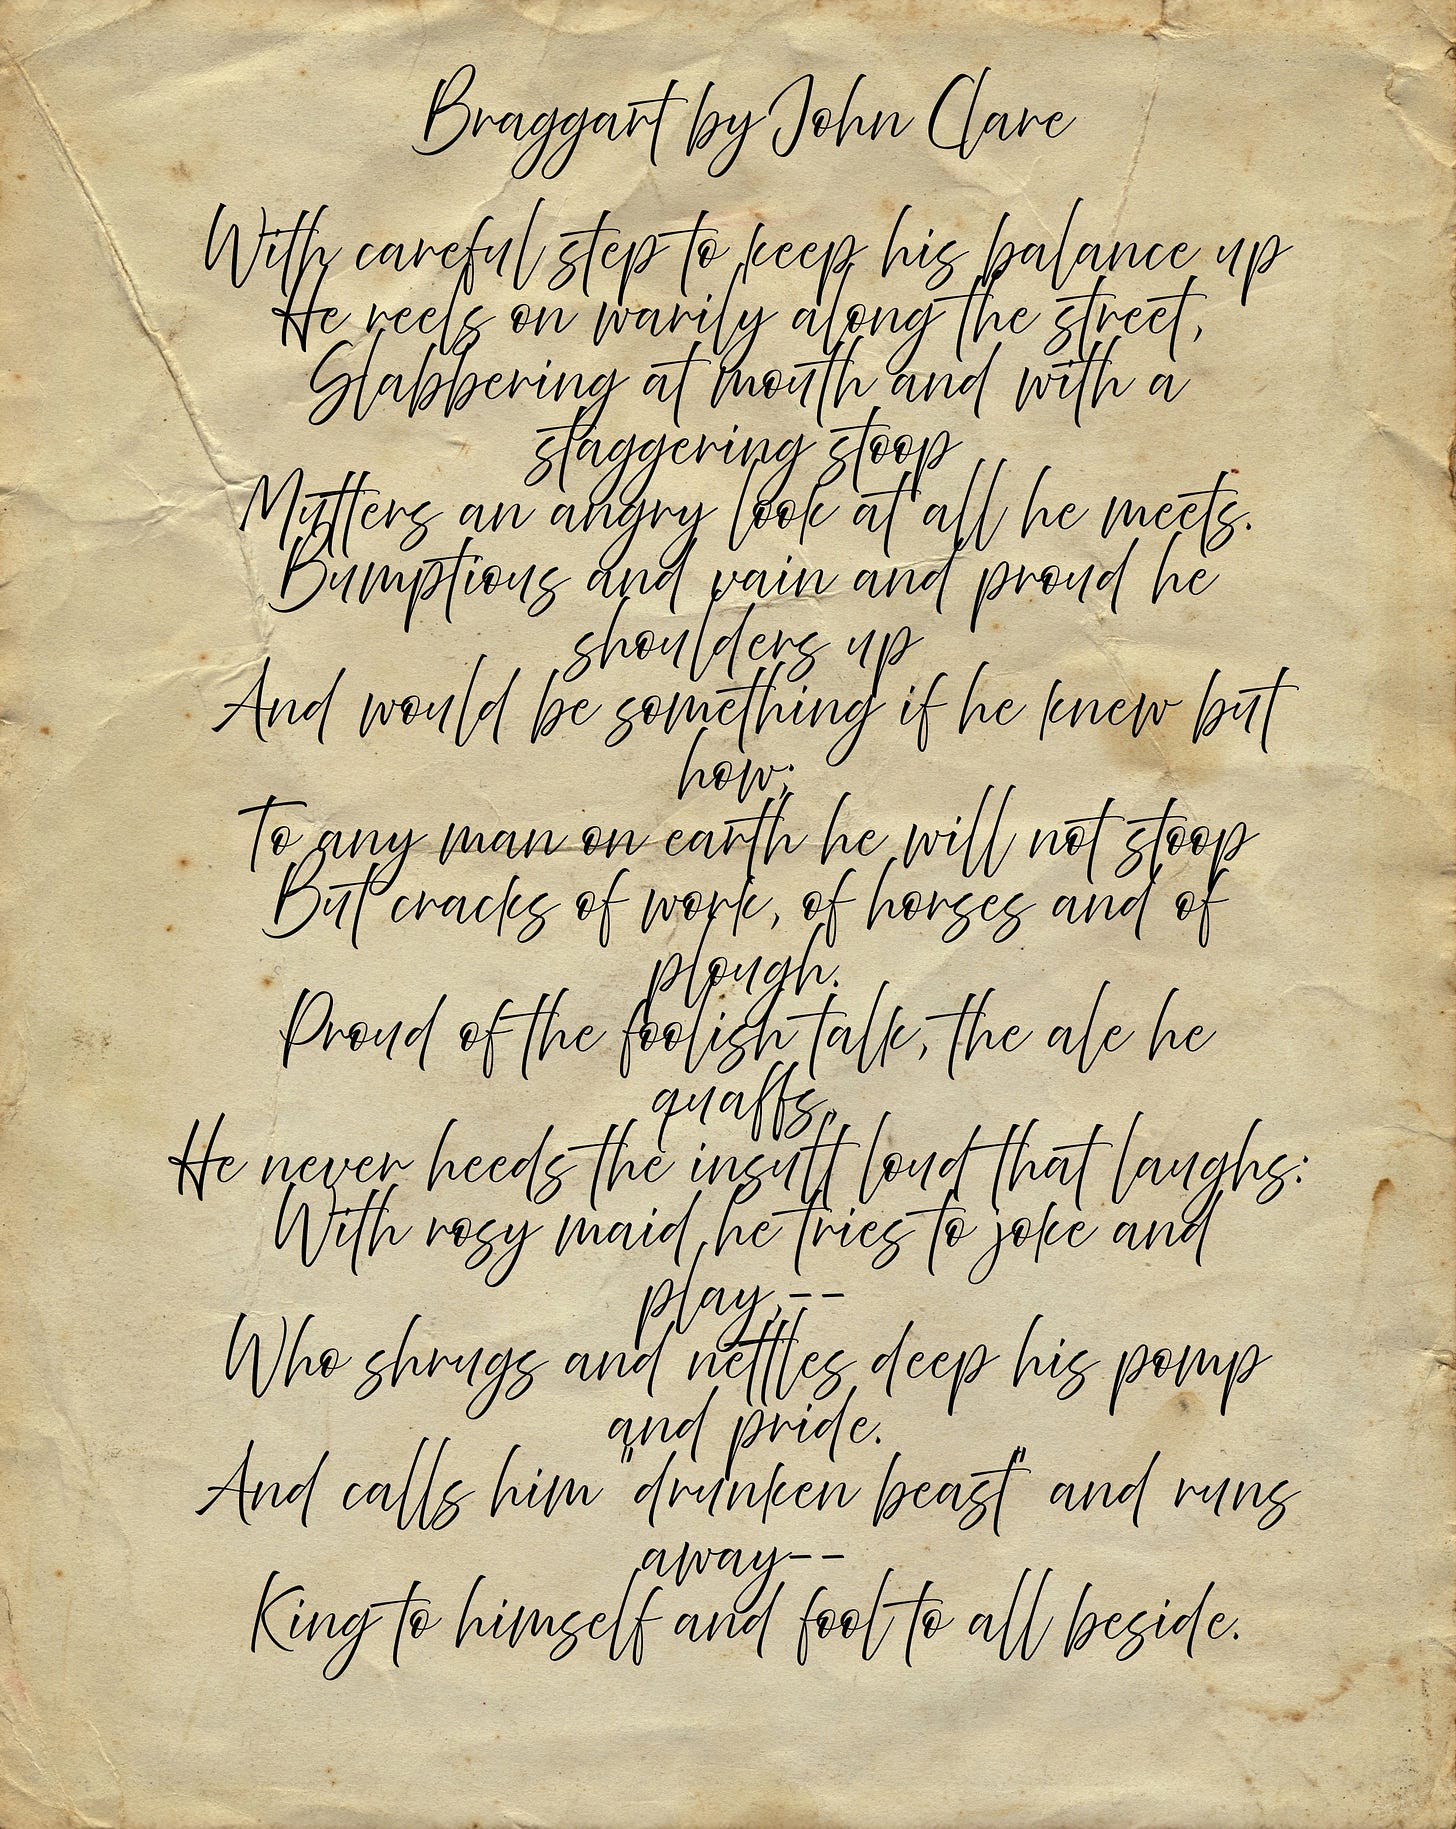 Braggart by John Clare
With careful step to keep his balance up
He reels on warily along the street,
Slabbering at mouth and with a
staggering stoop
Mutters an angry look at all he meets.
Bumptious and vain and proud he
shoulders up
And would be something if he knew but
how;
To any man on earth he will not stoop
But cracks of work, of horses and of
plough.
Proud of the foolish talk, the ale he
quaffs,
He never heeds the insult loud that laughs:
With rosy maid he tries to joke and
play,--
Who shrugs and nettles deep his pomp
and pride.
And calls him "drunken beast" and runs
away--
King to himself and fool to all beside.